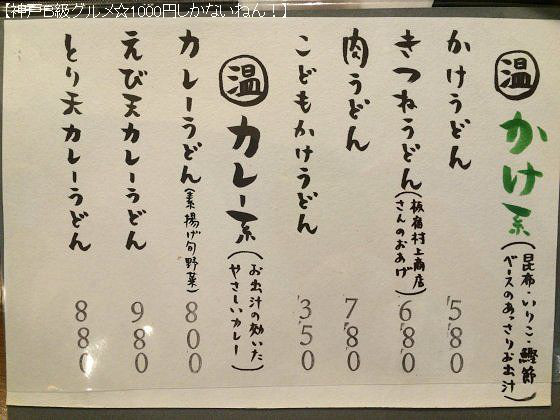 【神戸B級グルメ☆1000円しかないねん！】
温 かけ系(昆布・いりこ・鰹節ベースのあっさりお出汁)
かけうどん 580
きつねうどん(板宿村上商店さんのおあげ) 680
肉うどん 780
こどもかけうどん 350
温 カレー系(お出汁の効いたやさしいカレー)
カレーうどん(素揚げ旬野菜) 800
えび天カレーうどん 980
とり天カレーうどん 880